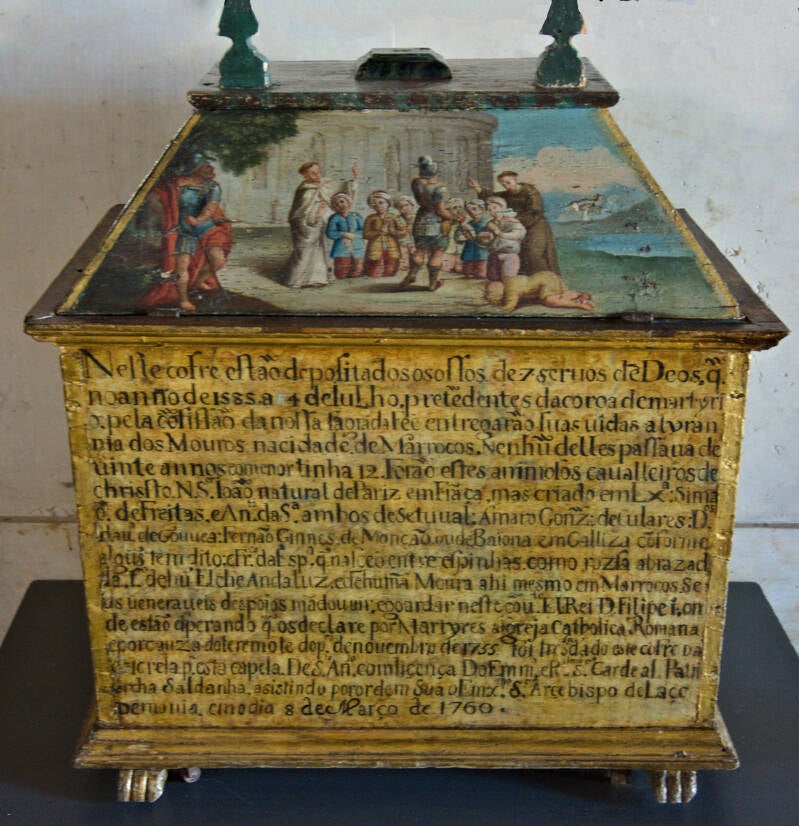 Neste cofre estão depositados os ossos de 7 seruos de Deos, q̃
no anno de 1585. a 4 de Iulho, pretẽdentes da coroa de martyri
o, pela cõfissão da nossa sagrada fe entregarão suas uidas a tyran
nia dos Mouros na cidade de Marrocos. Nenhũ delles passaua de
uinte annos, e o menor tinha 12. Forão estes animosos caualleiros de
christo. N. S. Ioão natural de Pariz em Frãça, mas criado em Lxª: Sima
õ de Freitas, e An. da Sª. ambos de Setuual: Amaro Gonz: de Culares: D.
de Gouuea: Fernão Ginnes de Monção, ou de Baiona em Galliza cõforme
algũs tem dito: e Fr. da sp. q̃ nasceo entre espinhas, como roza abrazad
F. de hũ Elche Andaluz, e de huma Moura ahi mesmo em Marrocos. Se
us ueneraueis despojos mãdou uir, e goardar neste cou. El Rei D Filipe I, on
de estão esperando q̃ os declare por Martyres a igreja Catholica Romana
e por cauza do teremote do p. de nouembro de 1755 foi tresladado este cofre da
igreja p. esta capela. De S. An. com licença Do Emm. e R. S. Cardeal Patri
archa Saldanha, asistindo por ordem Sua o Emx. S. Arcebispo de Lace
demonia, em o dia 8 de Março de 1760.